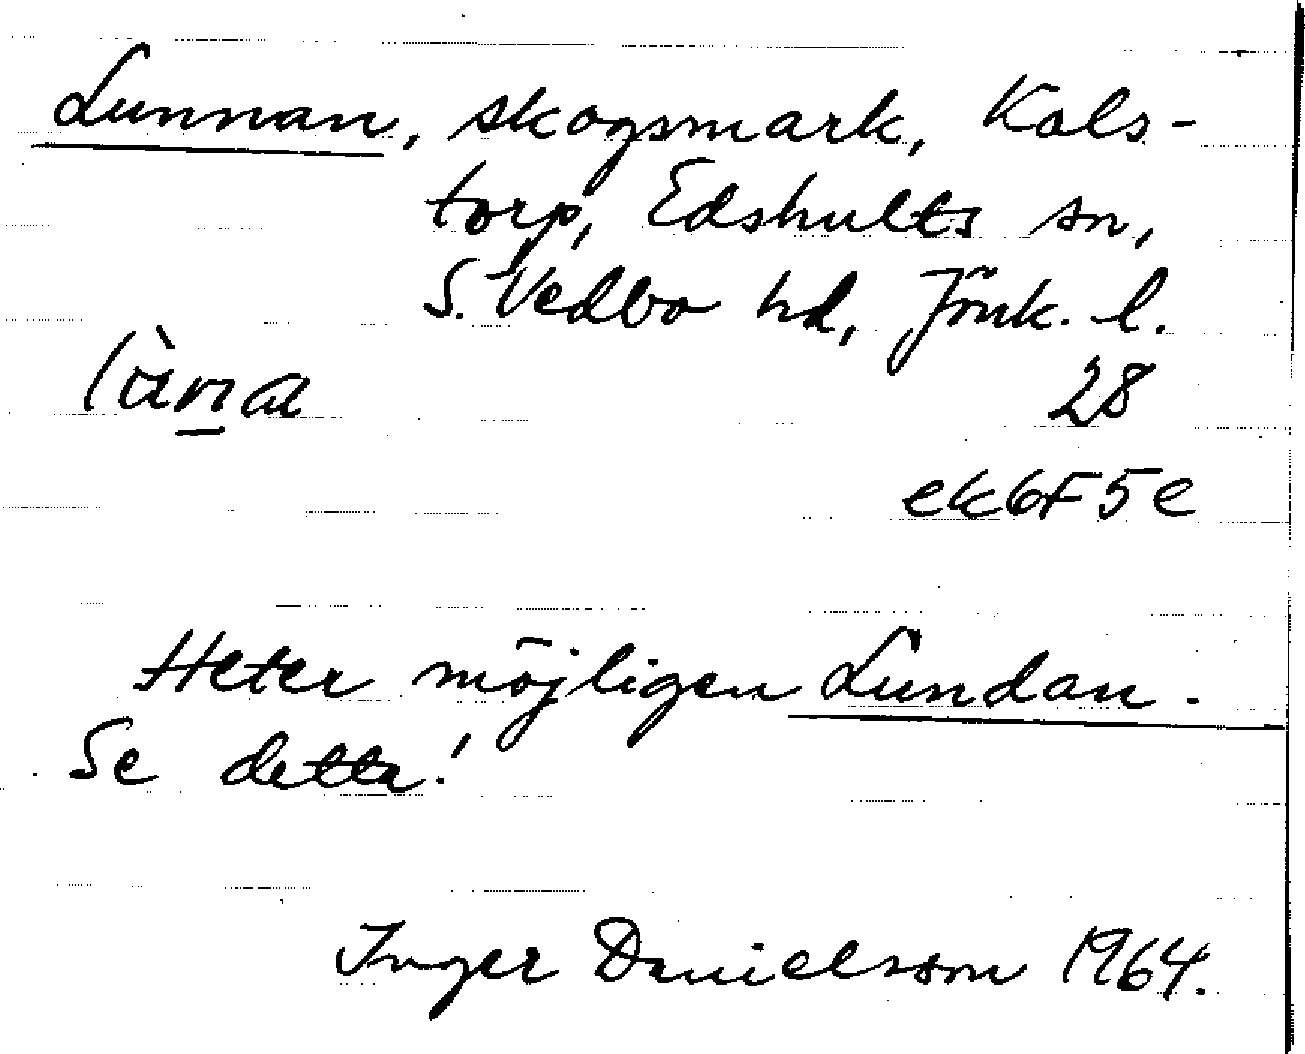 Lunnan, skogsmark, Kols-
torp, Edshults sn,
S. Vedbo hd, Jönk. l.
28
ek6F5e
Heter möjligen Lundan.
Se detta!
Inger Danielsson 1964.